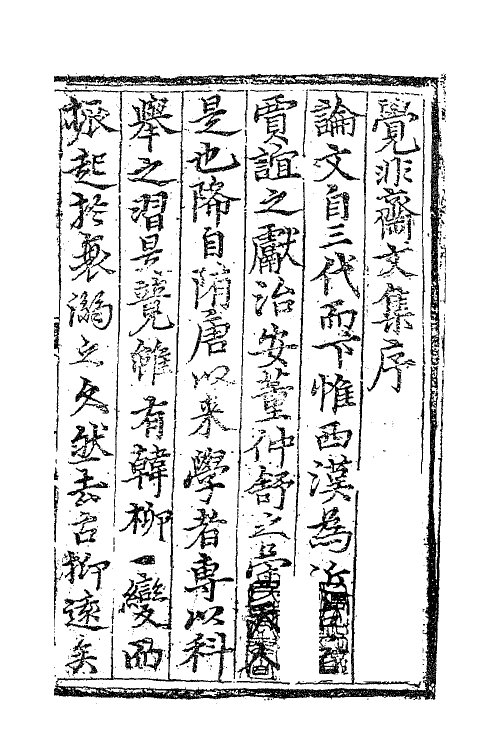 覺非齋文集序
論文自三代而下惟西漢為近
賈誼之獻治安董仲舒之
是也降自隋唐以來學者專以科
舉之習是競雖有韓柳一變而
振起於衰溺之久然去古抑遠矣